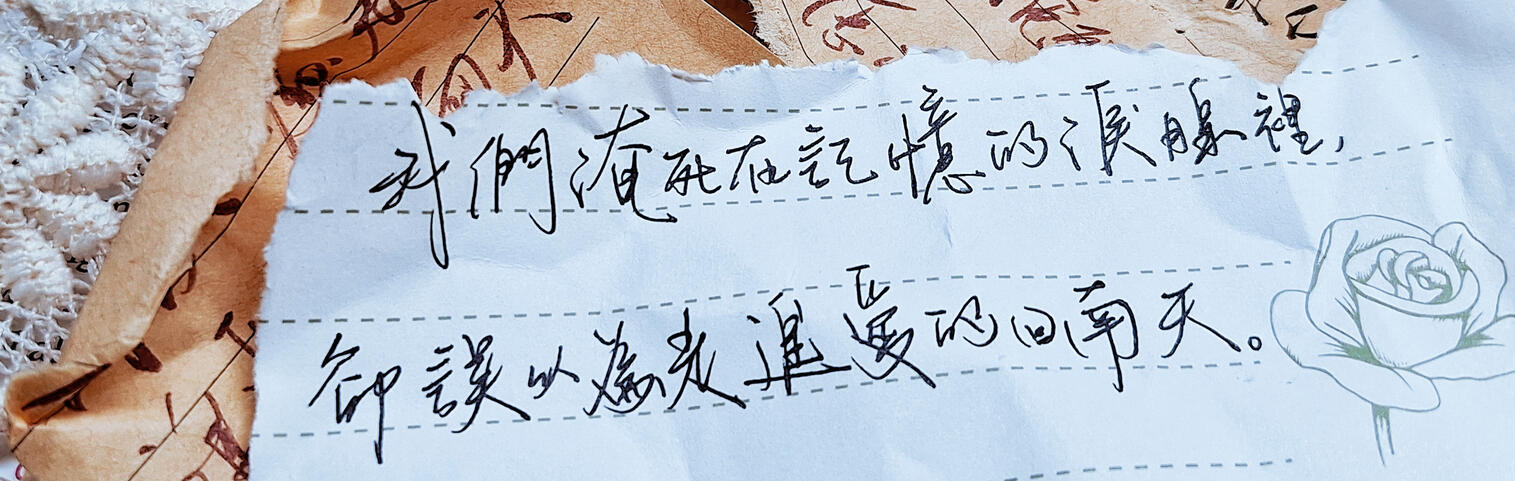 我們淹死在記憶的淚腺裡，
卻誤以為走進愛的回南天。